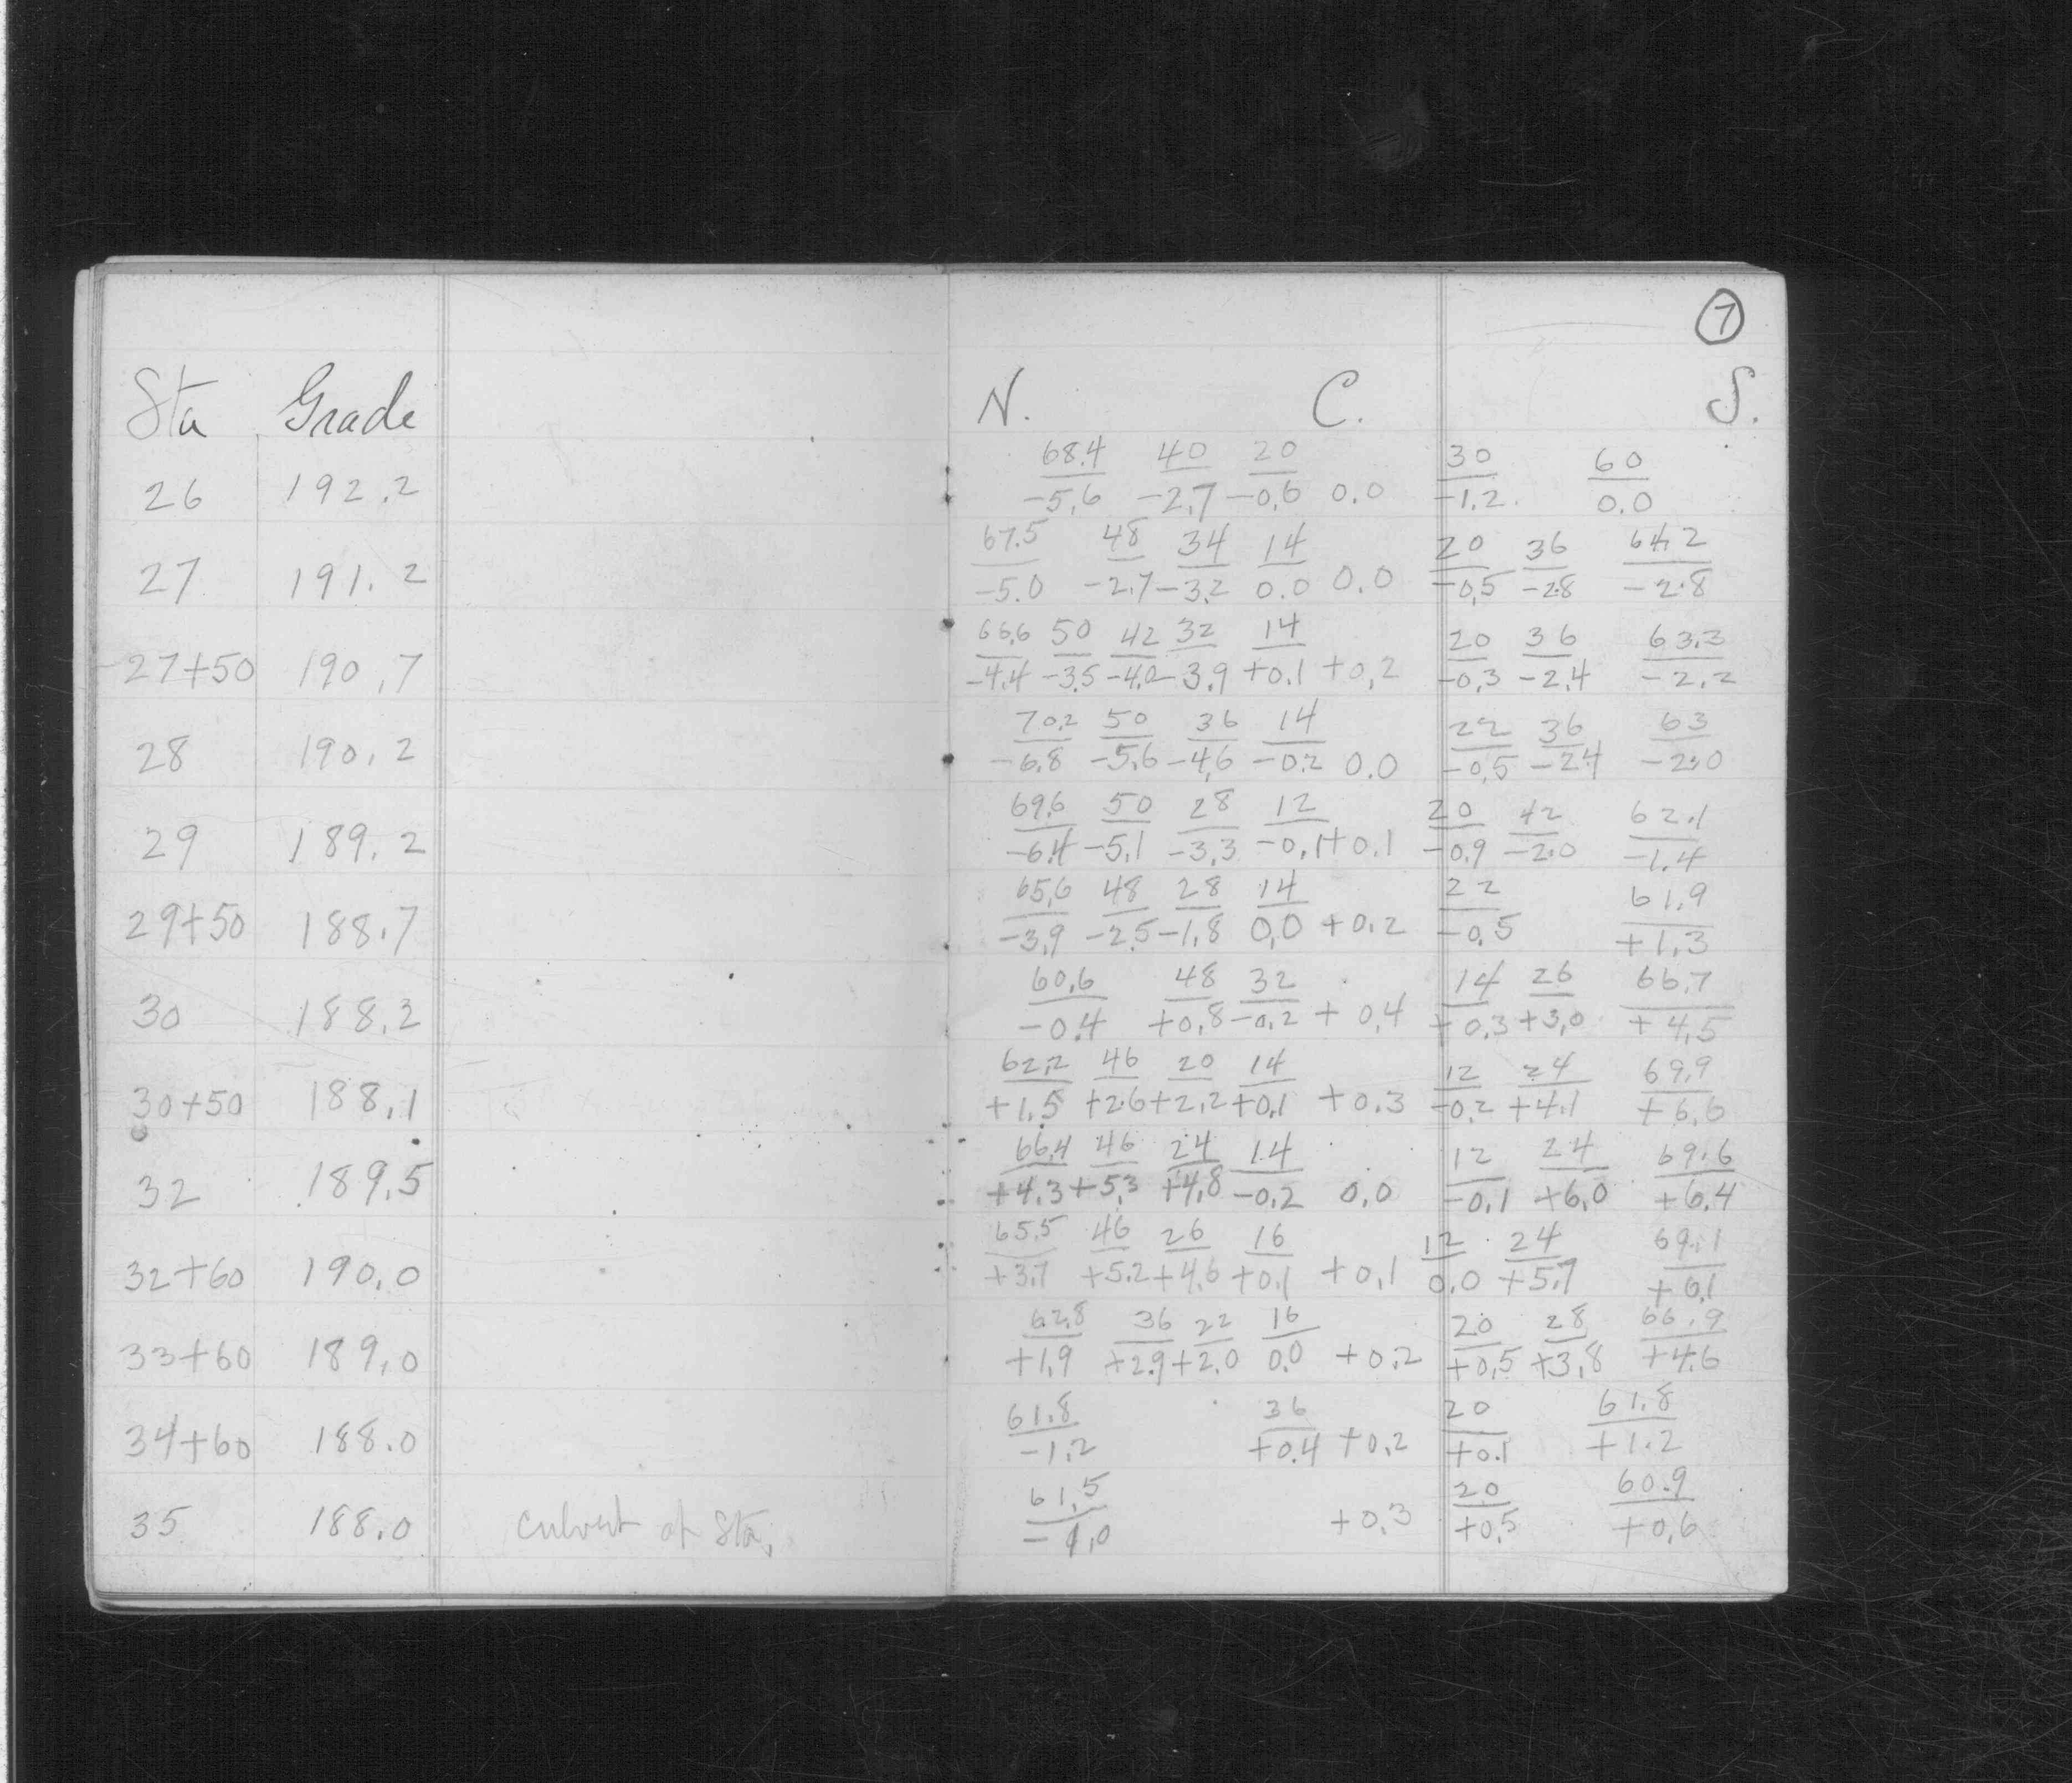 7
Sta Grade N. C. S.
68.4 40 20 30 60
26 192.2 -5.6 -2.7 -0.6 0.0 -1.2 0.0
67.5 48 34 14 20 36 64.2
27 191.2 -5.0 -2.7 -3.2 0.0 0.0 -0.5 -2.8 -2.8
66.6 50 42 32 14 20 36 63.3
27+50 190.7 -4.4 -3.5 -4.0 -3.9 +0.1 +0.2 -0.3 -2.4 -2.2
70.2 50 36 14 22 36 63
28 190.2 -6.8 -5.6 -4.6 -0.2 0.0 -0.5 -2.4 -2.0
69.6 50 28 12 20 42 62.1
29 189.2 -6.4 -5.1 -3.3 -0.1 +0.1 -0.9 -2.0 -1.4
65.6 48 28 14 22 61.9
29+50 188.7 -3.9 -2.5 -1.8 0.0 +0.2 -0.5 +1.3
60.6 48 32 14 26 66.7
30 188.2 -0.4 +0.8 -0.2 +0.4 +0.3 +3.0 +4.5
62.2 46 20 14 12 24 69.9
30+50 188.1 +1.5 +2.6 +2.2 +0.1 +0.3 -0.2 +4.1 +6.6
66.4 46 24 14 12 24 69.6
32 189.5 +4.3 +5.3 +4.8 -0.2 0.0 -0.1 +6.0 +6.4
65.5 46 26 16 12 24 69.1
32+60 190.0 +3.7 +5.2 +4.6 +0.1 +0.1 0.0 +5.7 +6.1
62.8 36 22 16 20 28 66.9
33+60 189.0 +1.9 +2.9 +2.0 0.0 +0.2 +0.5 +3.8 +4.6
61.8 36 20 61.8
34+60 188.0 -1.2 +0.4 +0.2 +0.1 +1.2
61.5 20 60.9
35 188.0 Culvert at Sta. -1.0 +0.3 +0.5 +0.6